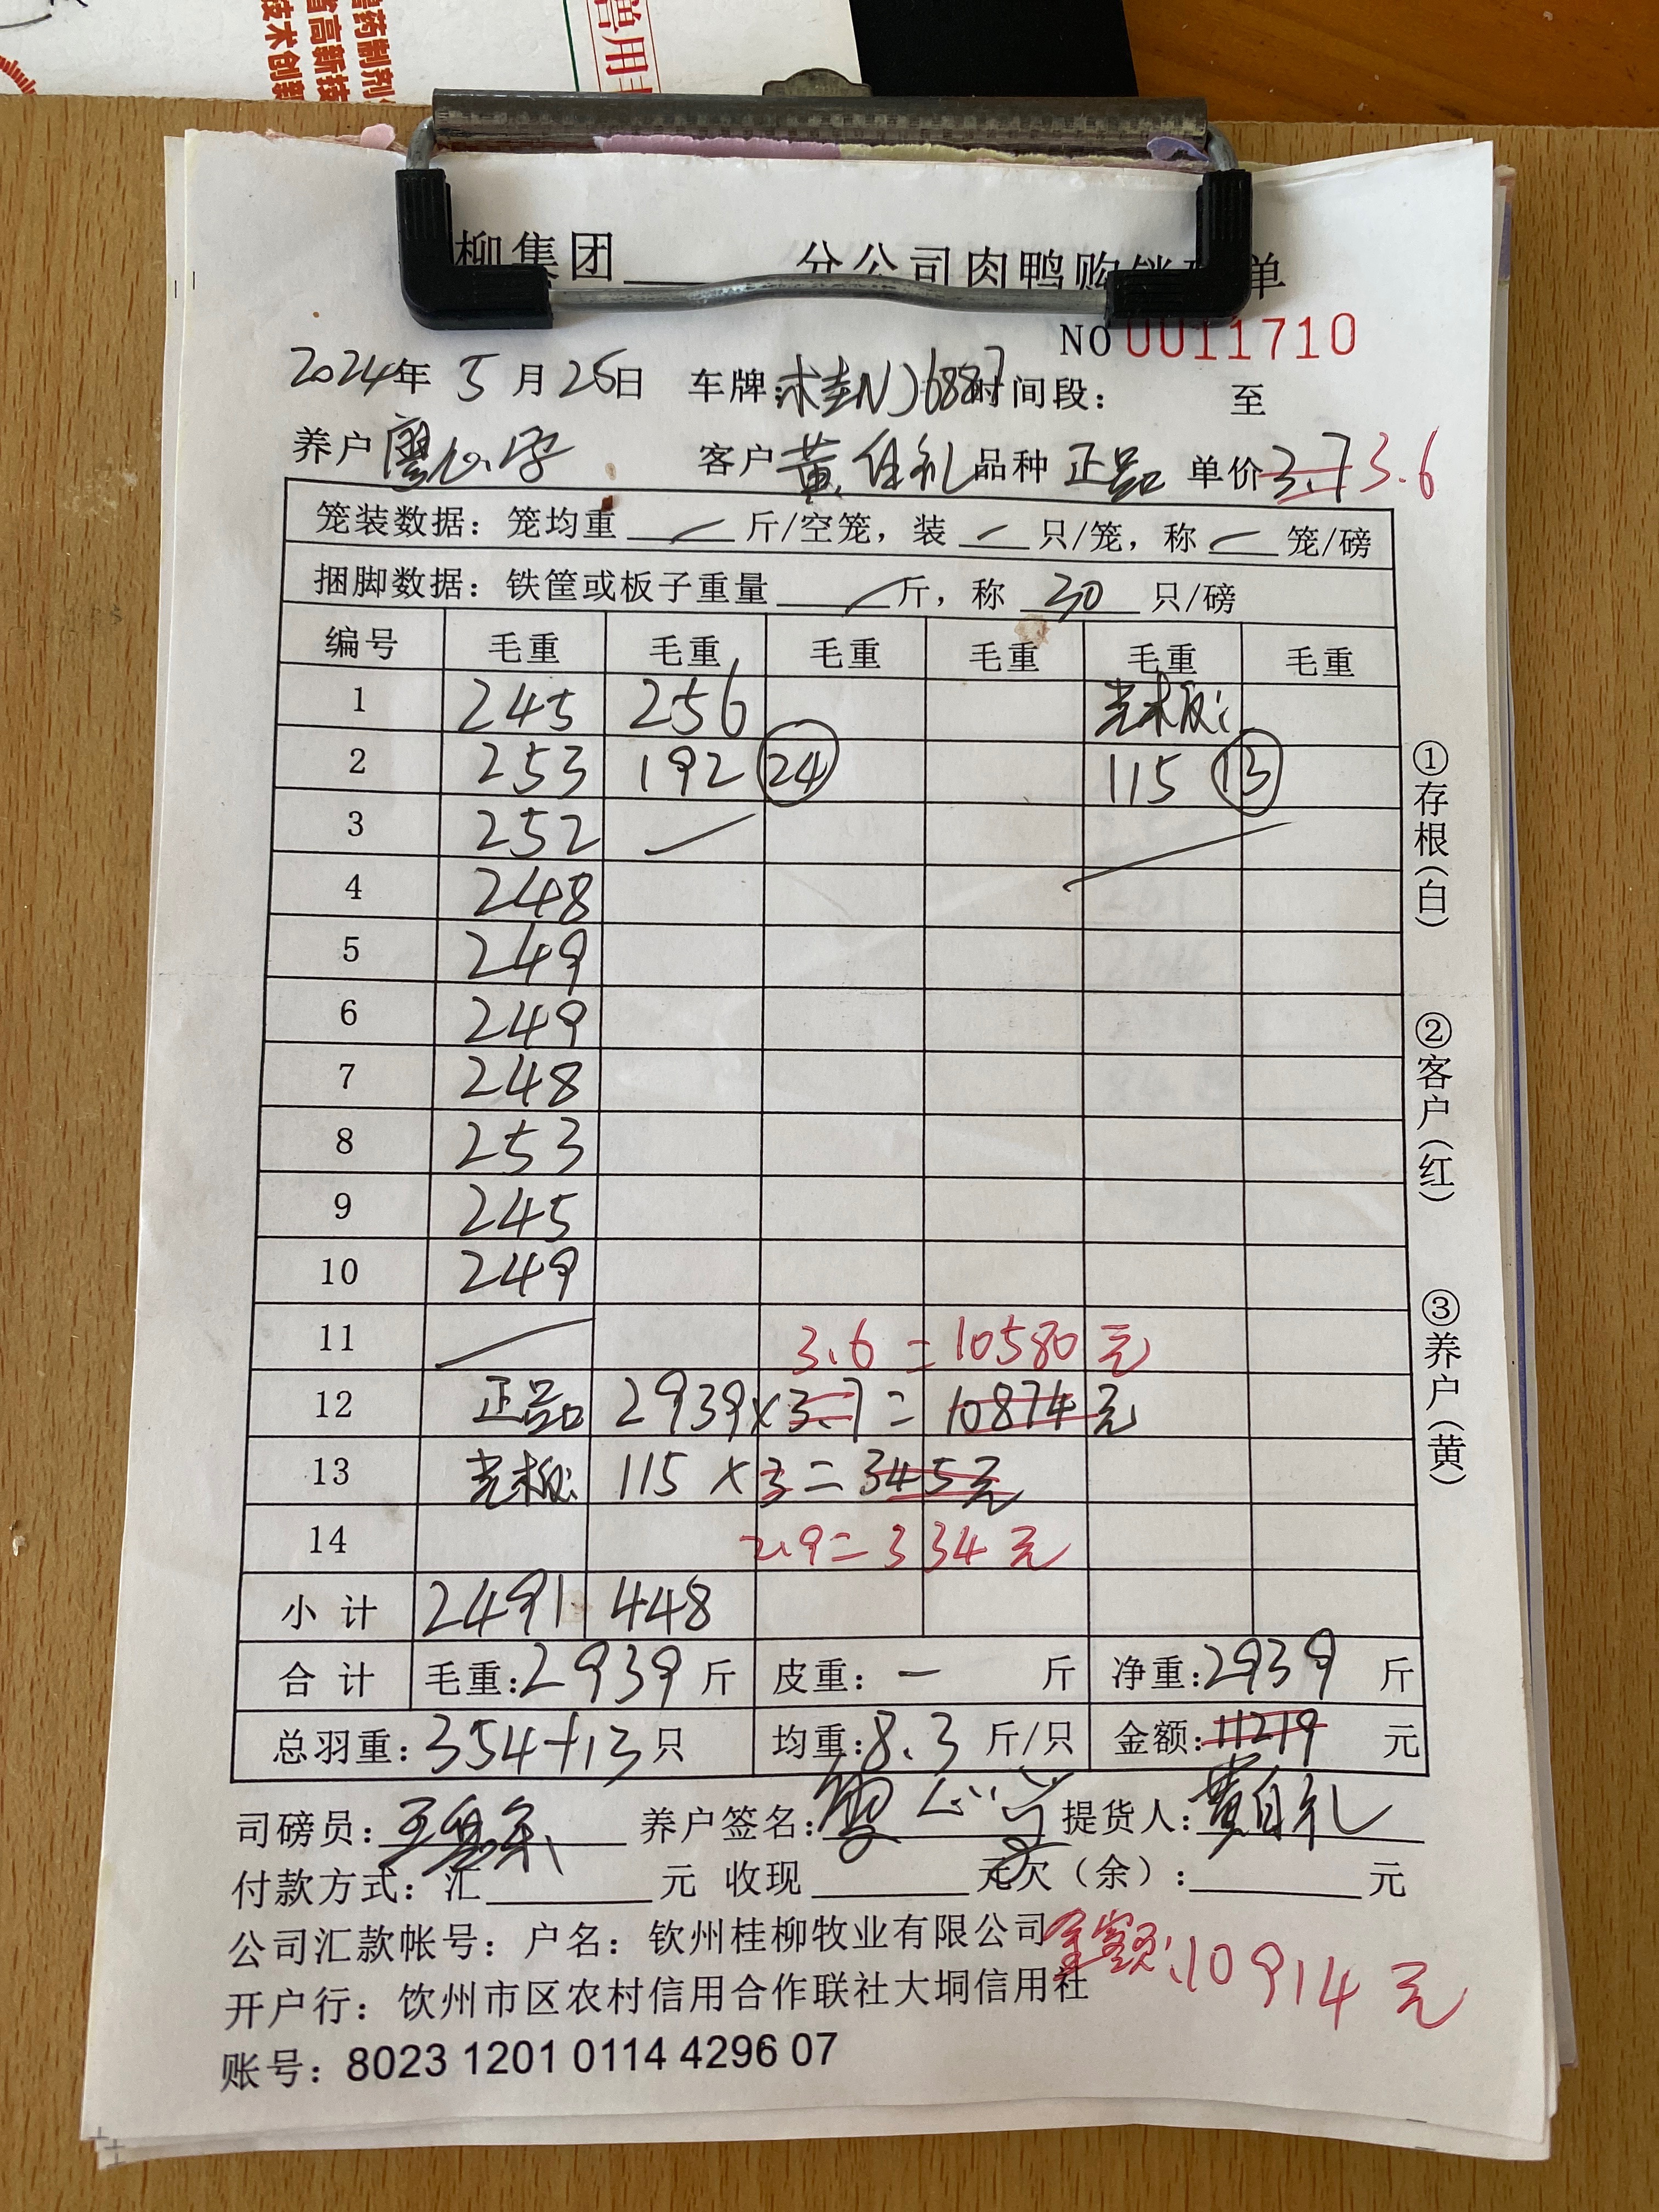 兽药制剂
省高新技
技术创新
营用
柳集团 分公司肉鸭购销 单
NO 0011710
2024年 5月26日 车牌: 时间段: 至
养户 廖 客户 黄自礼 品种 正品 单价 3.7 3.6
笼装数据: 笼均重 — 斤/空笼, 装 — 只/笼, 称 — 笼/磅
捆脚数据: 铁筐或板子重量 — 斤, 称 30 只/磅
编号 毛重 毛重 毛重 毛重 毛重 毛重
1 245 256 光板:
2 253 192 24 115 13
3 252
4 248
5 249
6 249
7 248
8 253
9 245
10 249
11 3.6 = 10580 元
12 正品 2939×3.7 = 10874 元
13 光板: 115 ×3 = 345元
14 2.9 = 334 元
小计 2491 448
合计 毛重:2939 斤 皮重: — 斤 净重:2939 斤
总羽重: 354+13只 均重:8.3 斤/只 金额:11219 元
司磅员: 养户签名:廖 提货人:黄自礼
付款方式: 汇 元 收现 元 欠(余): 元
公司汇款帐号: 户名: 钦州桂柳牧业有限公司
金额:10914元
开户行: 钦州市区农村信用合作联社大垌信用社
账号: 8023 1201 0114 4296 07
①存根(白)
②客户(红)
③养户(黄)